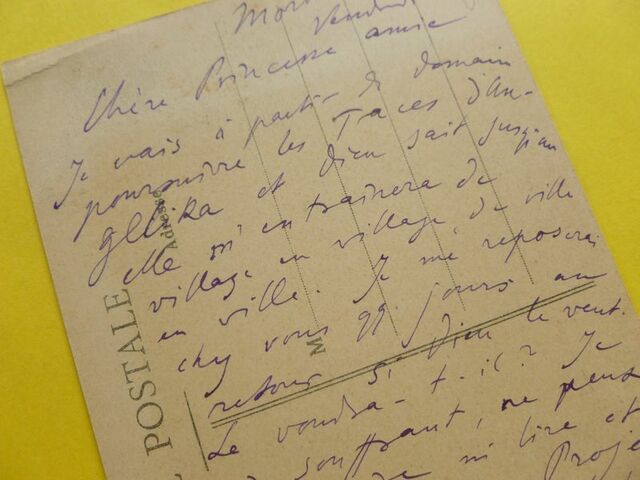 Vendredi
Chère Princesse amie
Je vais à partir de demain
poursuivre les Traces d'An-
gellika et Dieu sait jusqu'où
elle m'entrainera de
village en village, de ville
en ville. Je me reposerai
chez vous qq. jours au
retour si Dieu le veut.
Le voudra-t-il? Je
souffrant, ne peux
ni lire et
Proje
POSTALE
Adresse
M